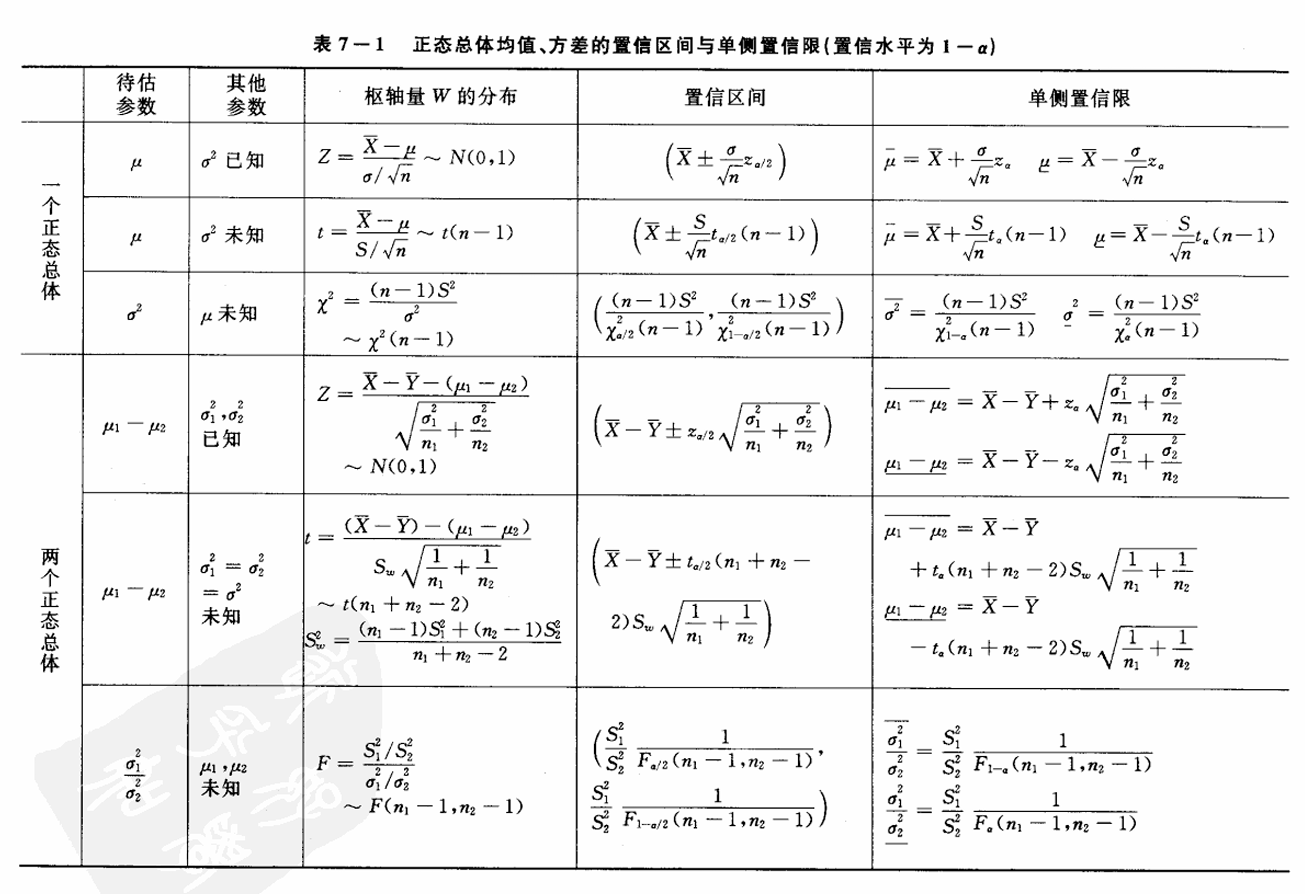 表 7-1 正态总体均值、方差的置信区间与单侧置信限(置信水平为 1-α)
待估参数 其他参数 枢轴量 W 的分布 置信区间 单侧置信限
一个正态总体
μ σ² 已知 Z = (X̄-μ)/(σ/√n) ~ N(0,1) (X̄ ± (σ/√n) z_{α/2}) μ̄ = X̄ + (σ/√n) z_α μ̲ = X̄ - (σ/√n) z_α
μ σ² 未知 t = (X̄-μ)/(S/√n) ~ t(n-1) (X̄ ± (S/√n) t_{α/2}(n-1)) μ̄ = X̄ + (S/√n) t_α(n-1) μ̲ = X̄ - (S/√n) t_α(n-1)
σ² μ 未知 χ² = (n-1)S²/σ² ~ χ²(n-1) ((n-1)S²/χ²_{α/2}(n-1), (n-1)S²/χ²_{1-α/2}(n-1)) σ̄² = (n-1)S²/χ²_{1-α}(n-1) σ̲² = (n-1)S²/χ²_α(n-1)
两个正态总体
μ₁-μ₂ σ₁²,σ₂² 已知 Z = (X̄-Ȳ-(μ₁-μ₂))/√(σ₁²/n₁ + σ₂²/n₂) ~ N(0,1) (X̄-Ȳ ± z_{α/2} √(σ₁²/n₁ + σ₂²/n₂)) \overline{μ₁-μ₂} = X̄-Ȳ + z_α √(σ₁²/n₁ + σ₂²/n₂)
\underline{μ₁-μ₂} = X̄-Ȳ - z_α √(σ₁²/n₁ + σ₂²/n₂)
μ₁-μ₂ σ₁² = σ₂² = σ² 未知 t = ((X̄-Ȳ)-(μ₁-μ₂))/(S_w √(1/n₁ + 1/n₂)) ~ t(n₁+n₂-2)
S_w² = ((n₁-1)S₁² + (n₂-1)S₂²)/(n₁+n₂-2)
(X̄-Ȳ ± t_{α/2}(n₁+n₂-2)S_w √(1/n₁ + 1/n₂))
\overline{μ₁-μ₂} = X̄-Ȳ + t_α(n₁+n₂-2)S_w √(1/n₁ + 1/n₂)
\underline{μ₁-μ₂} = X̄-Ȳ - t_α(n₁+n₂-2)S_w √(1/n₁ + 1/n₂)
σ₁²/σ₂² μ₁,μ₂ 未知 F = (S₁²/S₂²)/(σ₁²/σ₂²) ~ F(n₁-1,n₂-1)
(S₁²/S₂² 1/F_{α/2}(n₁-1,n₂-1), S₁²/S₂² 1/F_{1-α/2}(n₁-1,n₂-1))
\overline{σ₁²/σ₂²} = S₁²/S₂² 1/F_{1-α}(n₁-1,n₂-1)
\underline{σ₁²/σ₂²} = S₁²/S₂² 1/F_α(n₁-1,n₂-1)